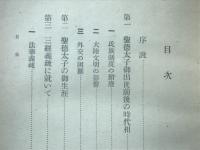 目次
序説
第一 聖德太子御出世前後の時代相
一 氏族制度の頽廢
二 大陸文明の影響
三 外交の困難
第二 聖德太子の御生涯
第三 三經義疏に就いて
一 法華義疏
目次